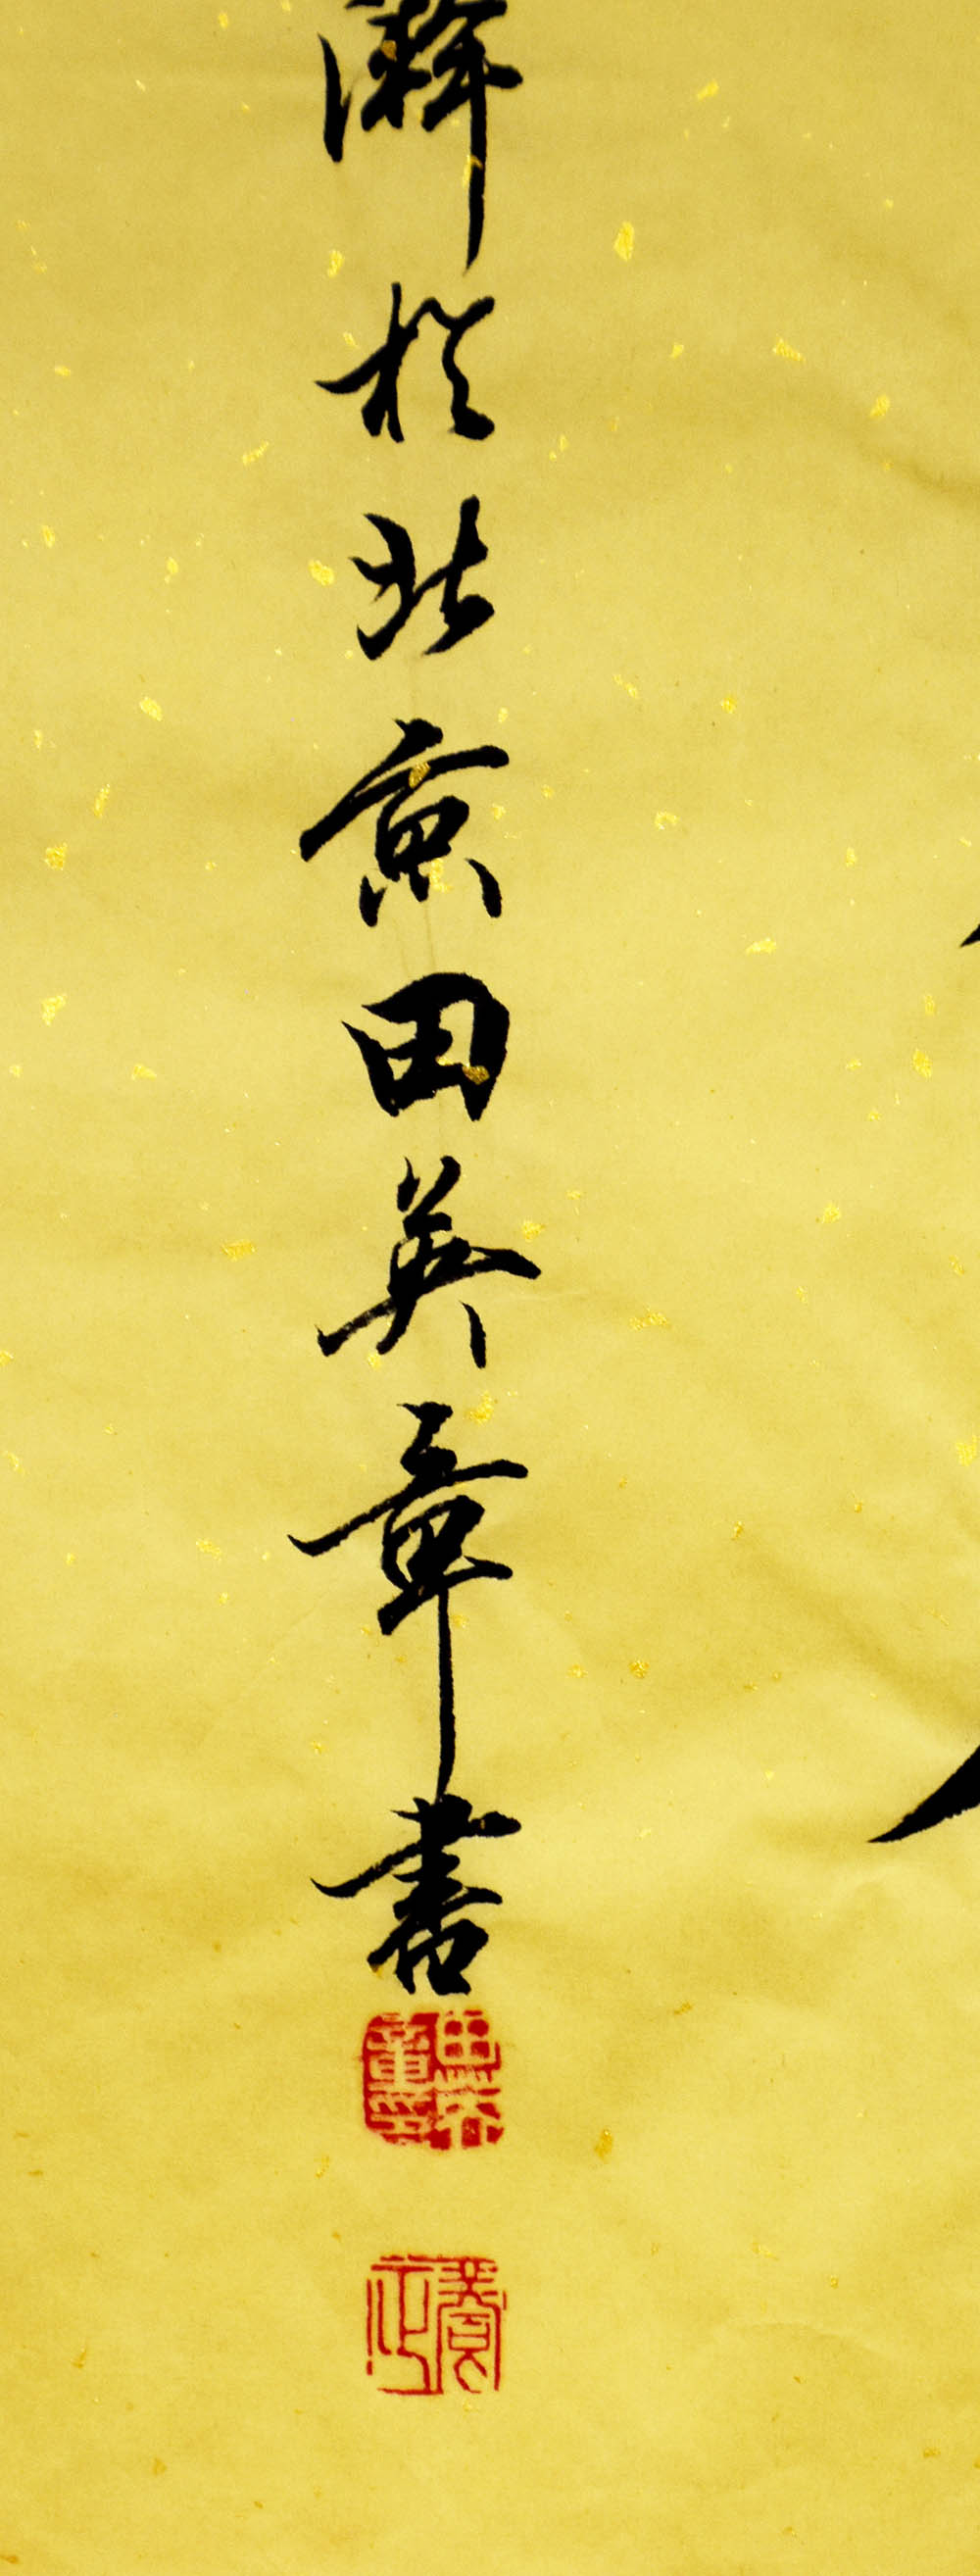 於北京田英章書